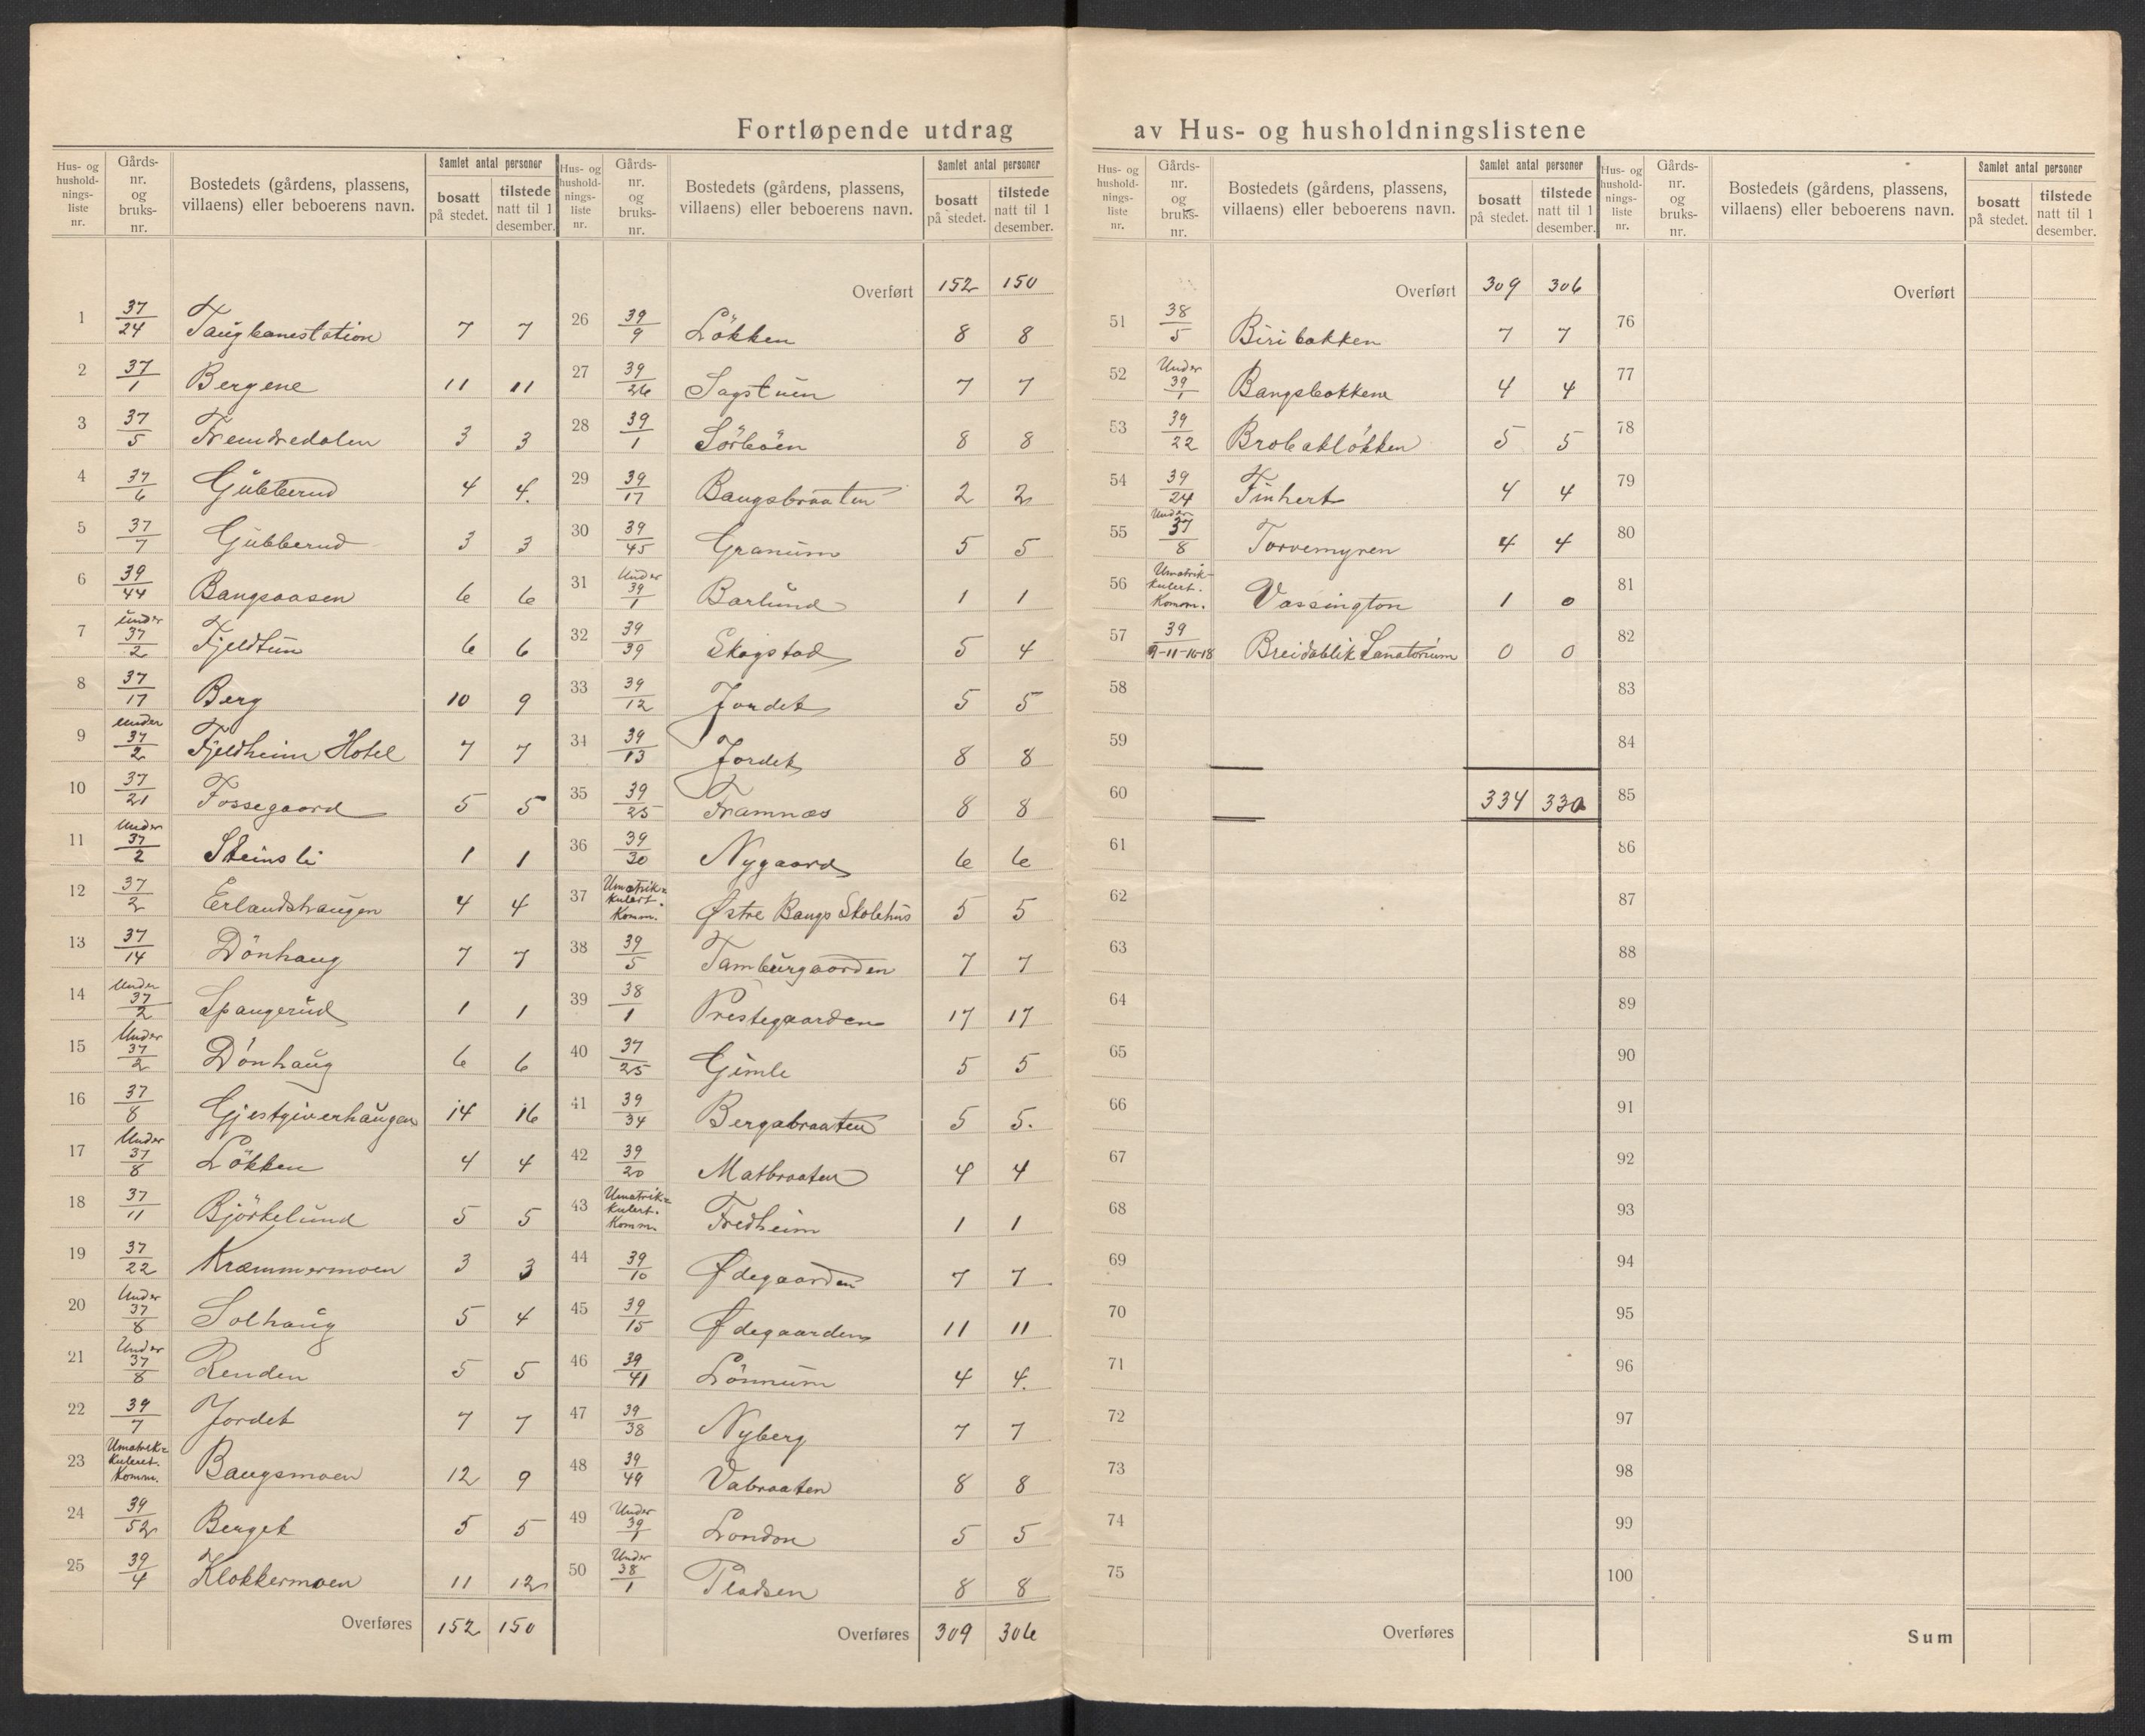 Fortløpende utdrag av Hus- og husholdningslistene
Hus- og husholdnings-liste nr. | Gårds-nr. og bruks-nr. | Bostedets (gårdens, plassens, villaens) eller beboerens navn. | Samlet antal personer | bosatt på stedet. | tilstede natt til 1 desember.
1 37/24 Taugbanestation 7 7
2 37/1 Bergene 11 11
3 37/5 Fremdredalen 3 3
4 37/6 Gubberud 4 4.
5 37/7 Gubberud 3 3
6 39/44 Bangsaasen 6 6
7 under 37/2 Fjeldtun 6 6
8 37/17 Berg 10 9
9 under 37/2 Fjeldheim Hotel 7 7
10 37/21 Fossegaard 5 5
11 Under 37/2 Steinsli 1 1
12 37/2 Erlandshaugen 4 4
13 37/14 Dönhaug 7 7
14 Under 37/2 Spangerud 1 1
15 Under 37/2 Dönhaug 6 6
16 37/8 Gjestgiverhaugen 14 16
17 Under 37/8 Lökken 4 4
18 37/11 Björkelund 5 5
19 37/22 Kræmmermoen 3 3
20 Under 37/8 Solhaug 5 4
21 Under 37/8 Renden 5 5
22 39/7 Jordet 7 7
23 Umatrik=kulert. Komm. Baugsmoen 12 9
24 39/52 Berget 5 5
25 39/4 Klokkermoen 11 12
Overføres 152 150
Hus- og husholdnings-liste nr. | Gårds-nr. og bruks-nr. | Bostedets (gårdens, plassens, villaens) eller beboerens navn. | Samlet antal personer | bosatt på stedet. | tilstede natt til 1 desember.
Overført 152 150
26 39/9 Lökken 8 8
27 39/26 Sagstuen 7 7
28 39/1 Sörböen 8 8
29 39/17 Baugsbraaten 2 2
30 39/45 Granum 5 5
31 Under 39/1 Barlund 1 1
32 39/39 Skogstad 5 4
33 39/12 Jordet 5 5
34 39/13 Jordet 8 8
35 39/25 Framnæs 8 8
36 39/30 Nygaard 6 6
37 Umatrik=kulert. Komm. Østre Bangs Skolehus 5 5
38 39/5 Tamburgaarden 7 7
39 38/1 Prestegaarden 17 17
40 37/25 Gimle 5 5
41 39/34 Bergabraaten 5 5.
42 39/20 Matbraaten 4 4
43 Umatrik=kulert. Komm. Fredheim 1 1
44 39/10 Ødegaarden 7 7
45 39/15 Ødegaarden 11 11
46 39/41 Lönnum 4 4.
47 39/38 Nyberg 7 7
48 39/49 Vabraaten 8 8
49 Under 39/1 London 5 5
50 Under 38/1 Pladsen 8 8
Overføres 309 306
Hus- og husholdnings-liste nr. | Gårds-nr. og bruks-nr. | Bostedets (gårdens, plassens, villaens) eller beboerens navn. | Samlet antal personer | bosatt på stedet. | tilstede natt til 1 desember.
Overført 309 306
51 38/5 Biribakken 7 7
52 Under 39/1 Bangsbakkene 4 4
53 39/22 Brobaklökken 5 5
54 39/24 Finhert 4 4
55 Under 37/8 Torvemyren 4 4
56 Umatrik-kulert. Komm. Vassington 1 0
57 39/9-11-16-18 Breidablik Sanatorium 0 0
58
59
60 334 330
61
62
63
64
65
66
67
68
69
70
71
72
73
74
75
Overføres
Hus- og husholdnings-liste nr. | Gårds-nr. og bruks-nr. | Bostedets (gårdens, plassens, villaens) eller beboerens navn. | Samlet antal personer | bosatt på stedet. | tilstede natt til 1 desember.
Overført
76
77
78
79
80
81
82
83
84
85
86
87
88
89
90
91
92
93
94
95
96
97
98
99
100
Sum